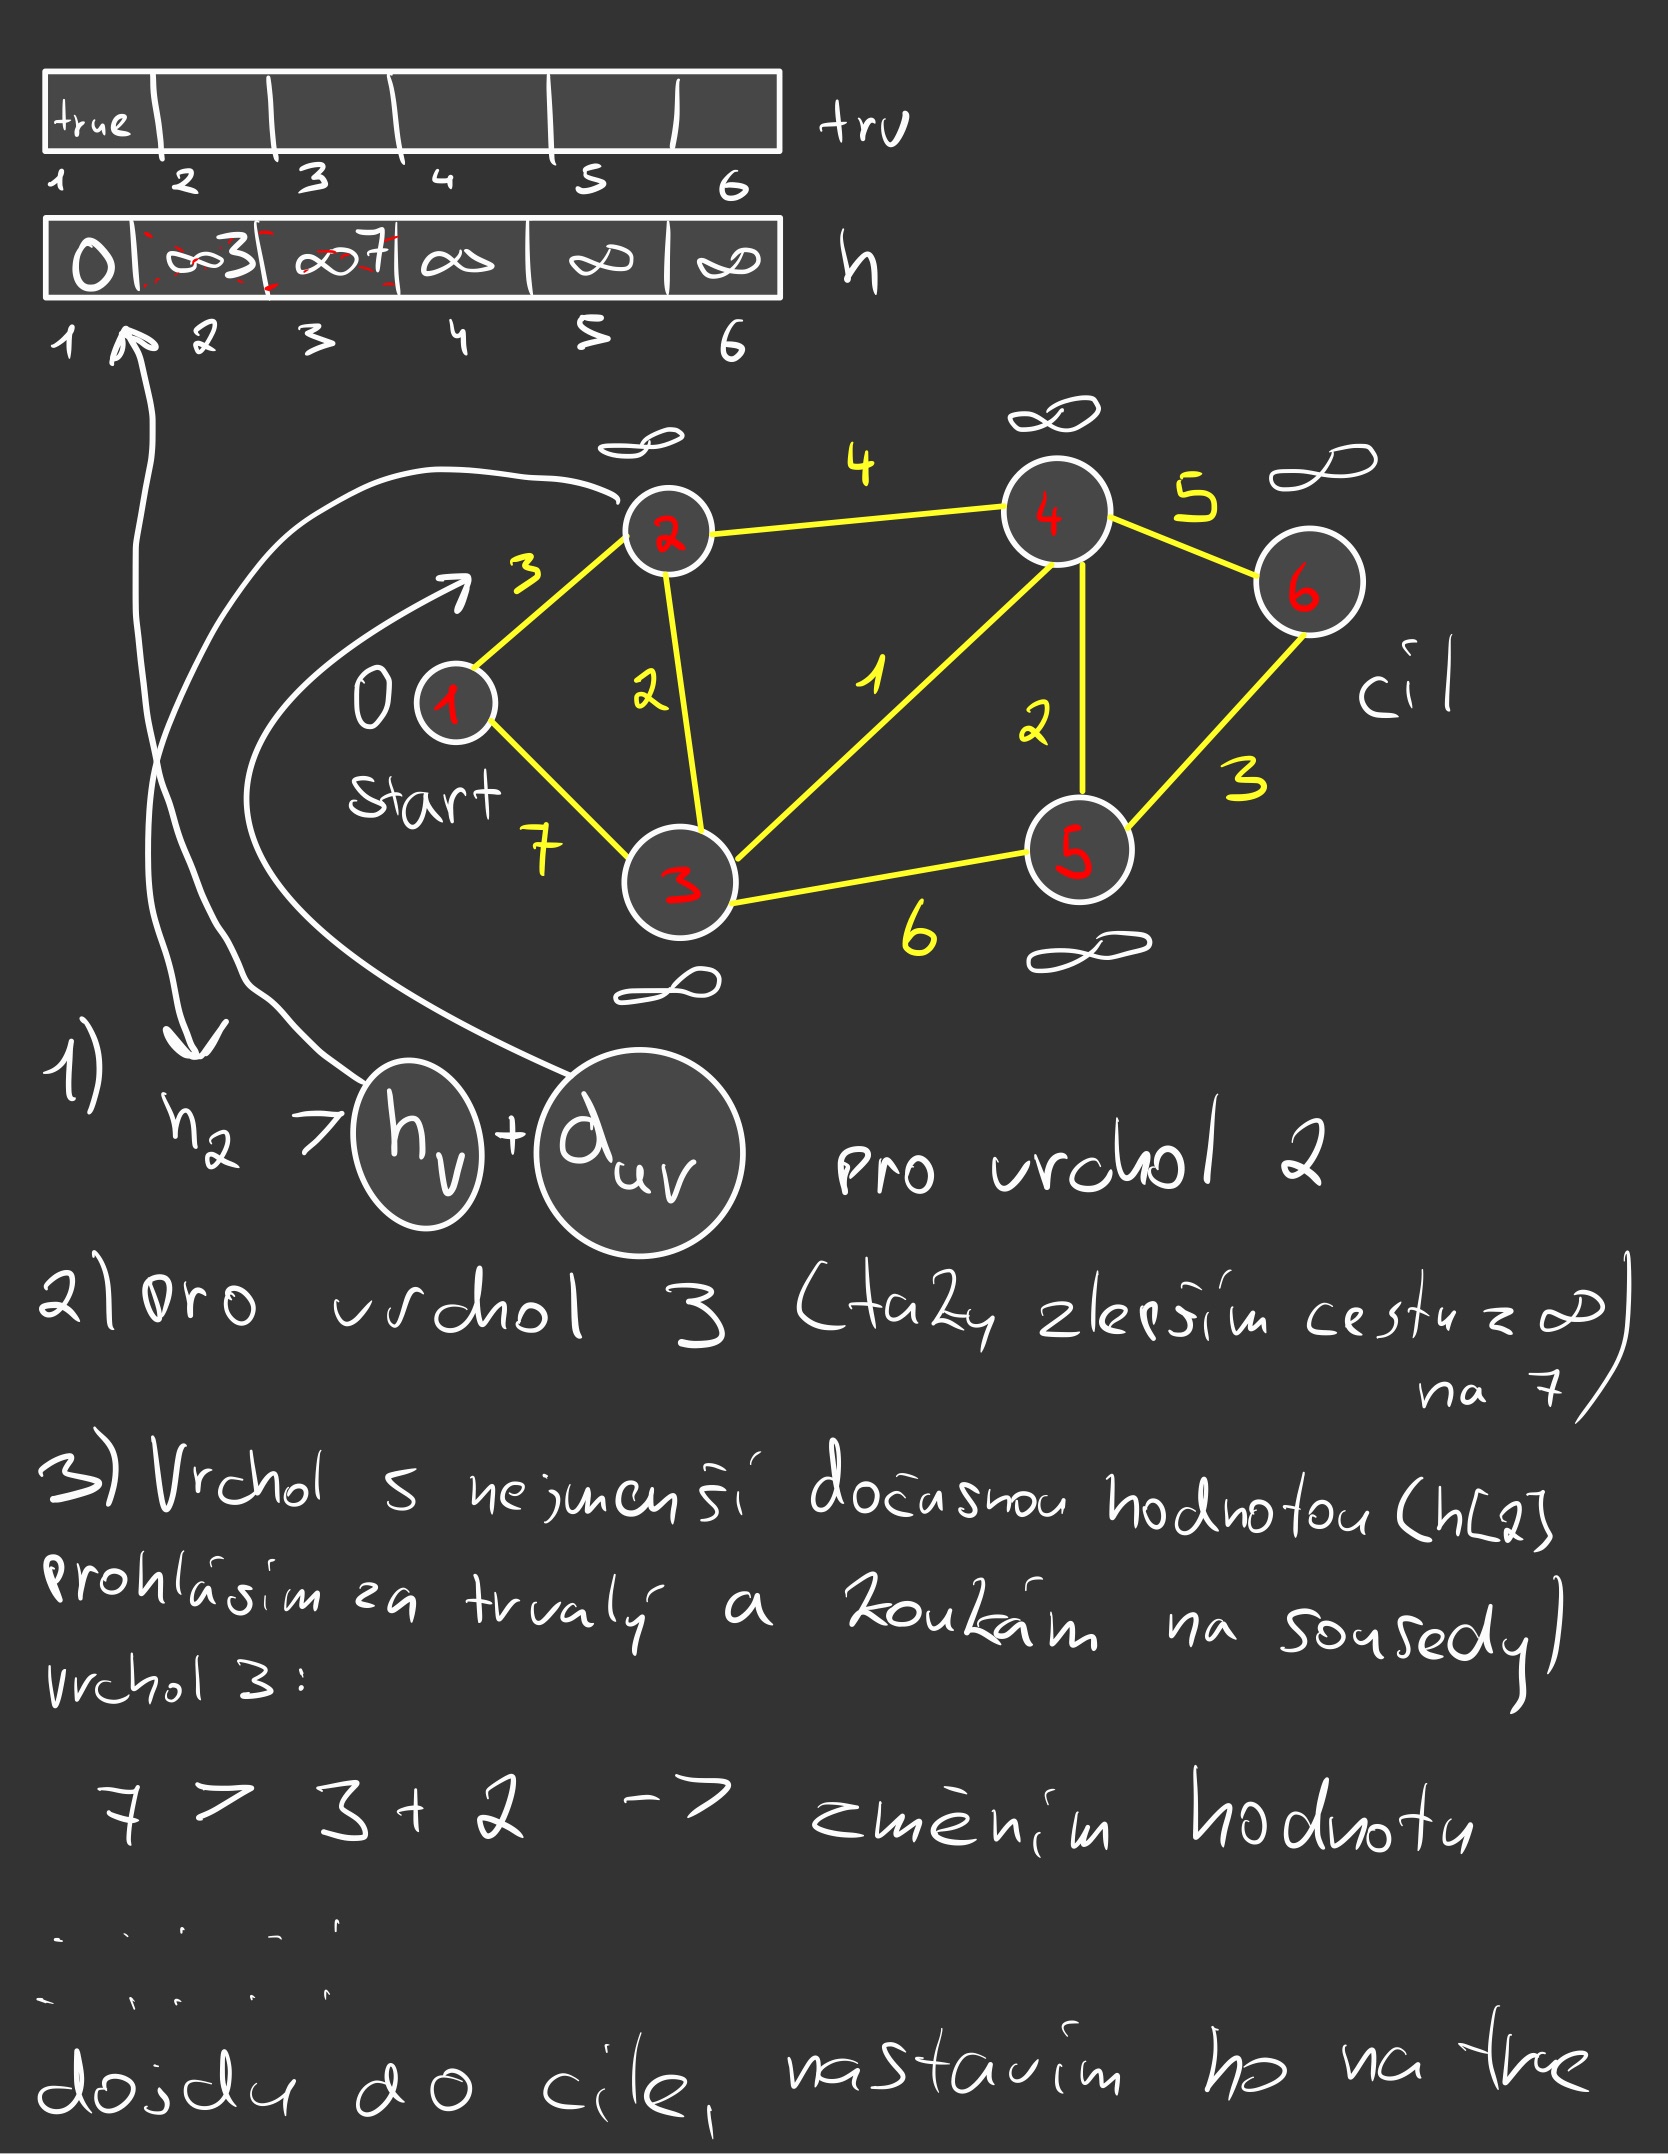 true
trv
1 2 3 4 5 6
0 ∞ 3 ∞ 7 ∞ ∞ ∞
h
1 2 3 4 5 6
∞
∞
4
∞
5
2
4
3
6
0
1
2
1
2
cíl
start
3
7
3
5
6
∞
∞
1)
h2 > hv + duv pro vrchol 2
2) pro vrchol 3 (taky zlepším cestu z ∞
na 7)
3) Vrchol s nejmenší dočasnou hodnotou (h[2]
prohlásím za trvalý a koukám na sousedy)
vrchol 3:
7 > 3 + 2 -> změním hodnotu
dojdu do cíle, nastavím ho na true